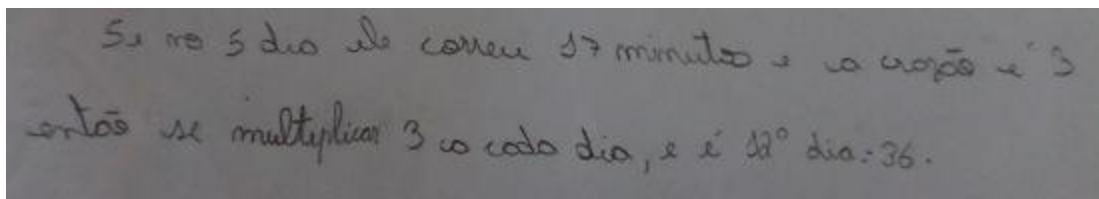 Se no 5 dia ele correu 17 minutos e a razão é 3
então se multiplicar 3 a cada dia, e é 12° dia = 36.